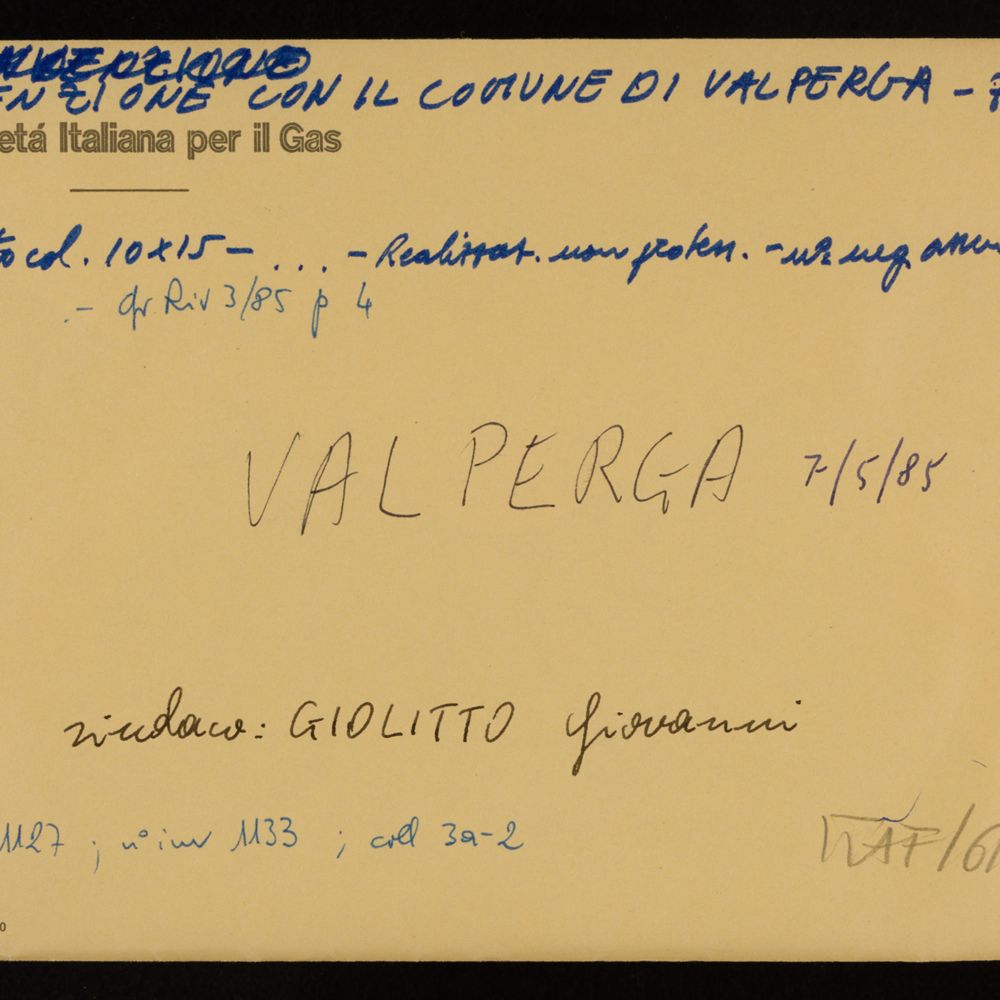 ENZIONE CON IL COMUNE DI VALPERGA - 7
età Italiana per il Gas
to col. 10x15 - ... - Realizzat. non profess. - n° neg.
- cfr Riv 3/85 p 4
VALPERGA 7/5/85
sindaco: GIOLITTO Giovanni
1127 ; n° inv 1133 ; coll 3a-2